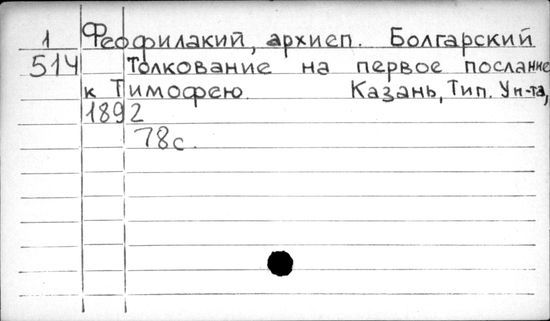 1 Феофилакий, архиеп. Болгарский
514 Толкование на первое послание
к Тимофею Казань, Тип. Ун-та,
1892
78с.